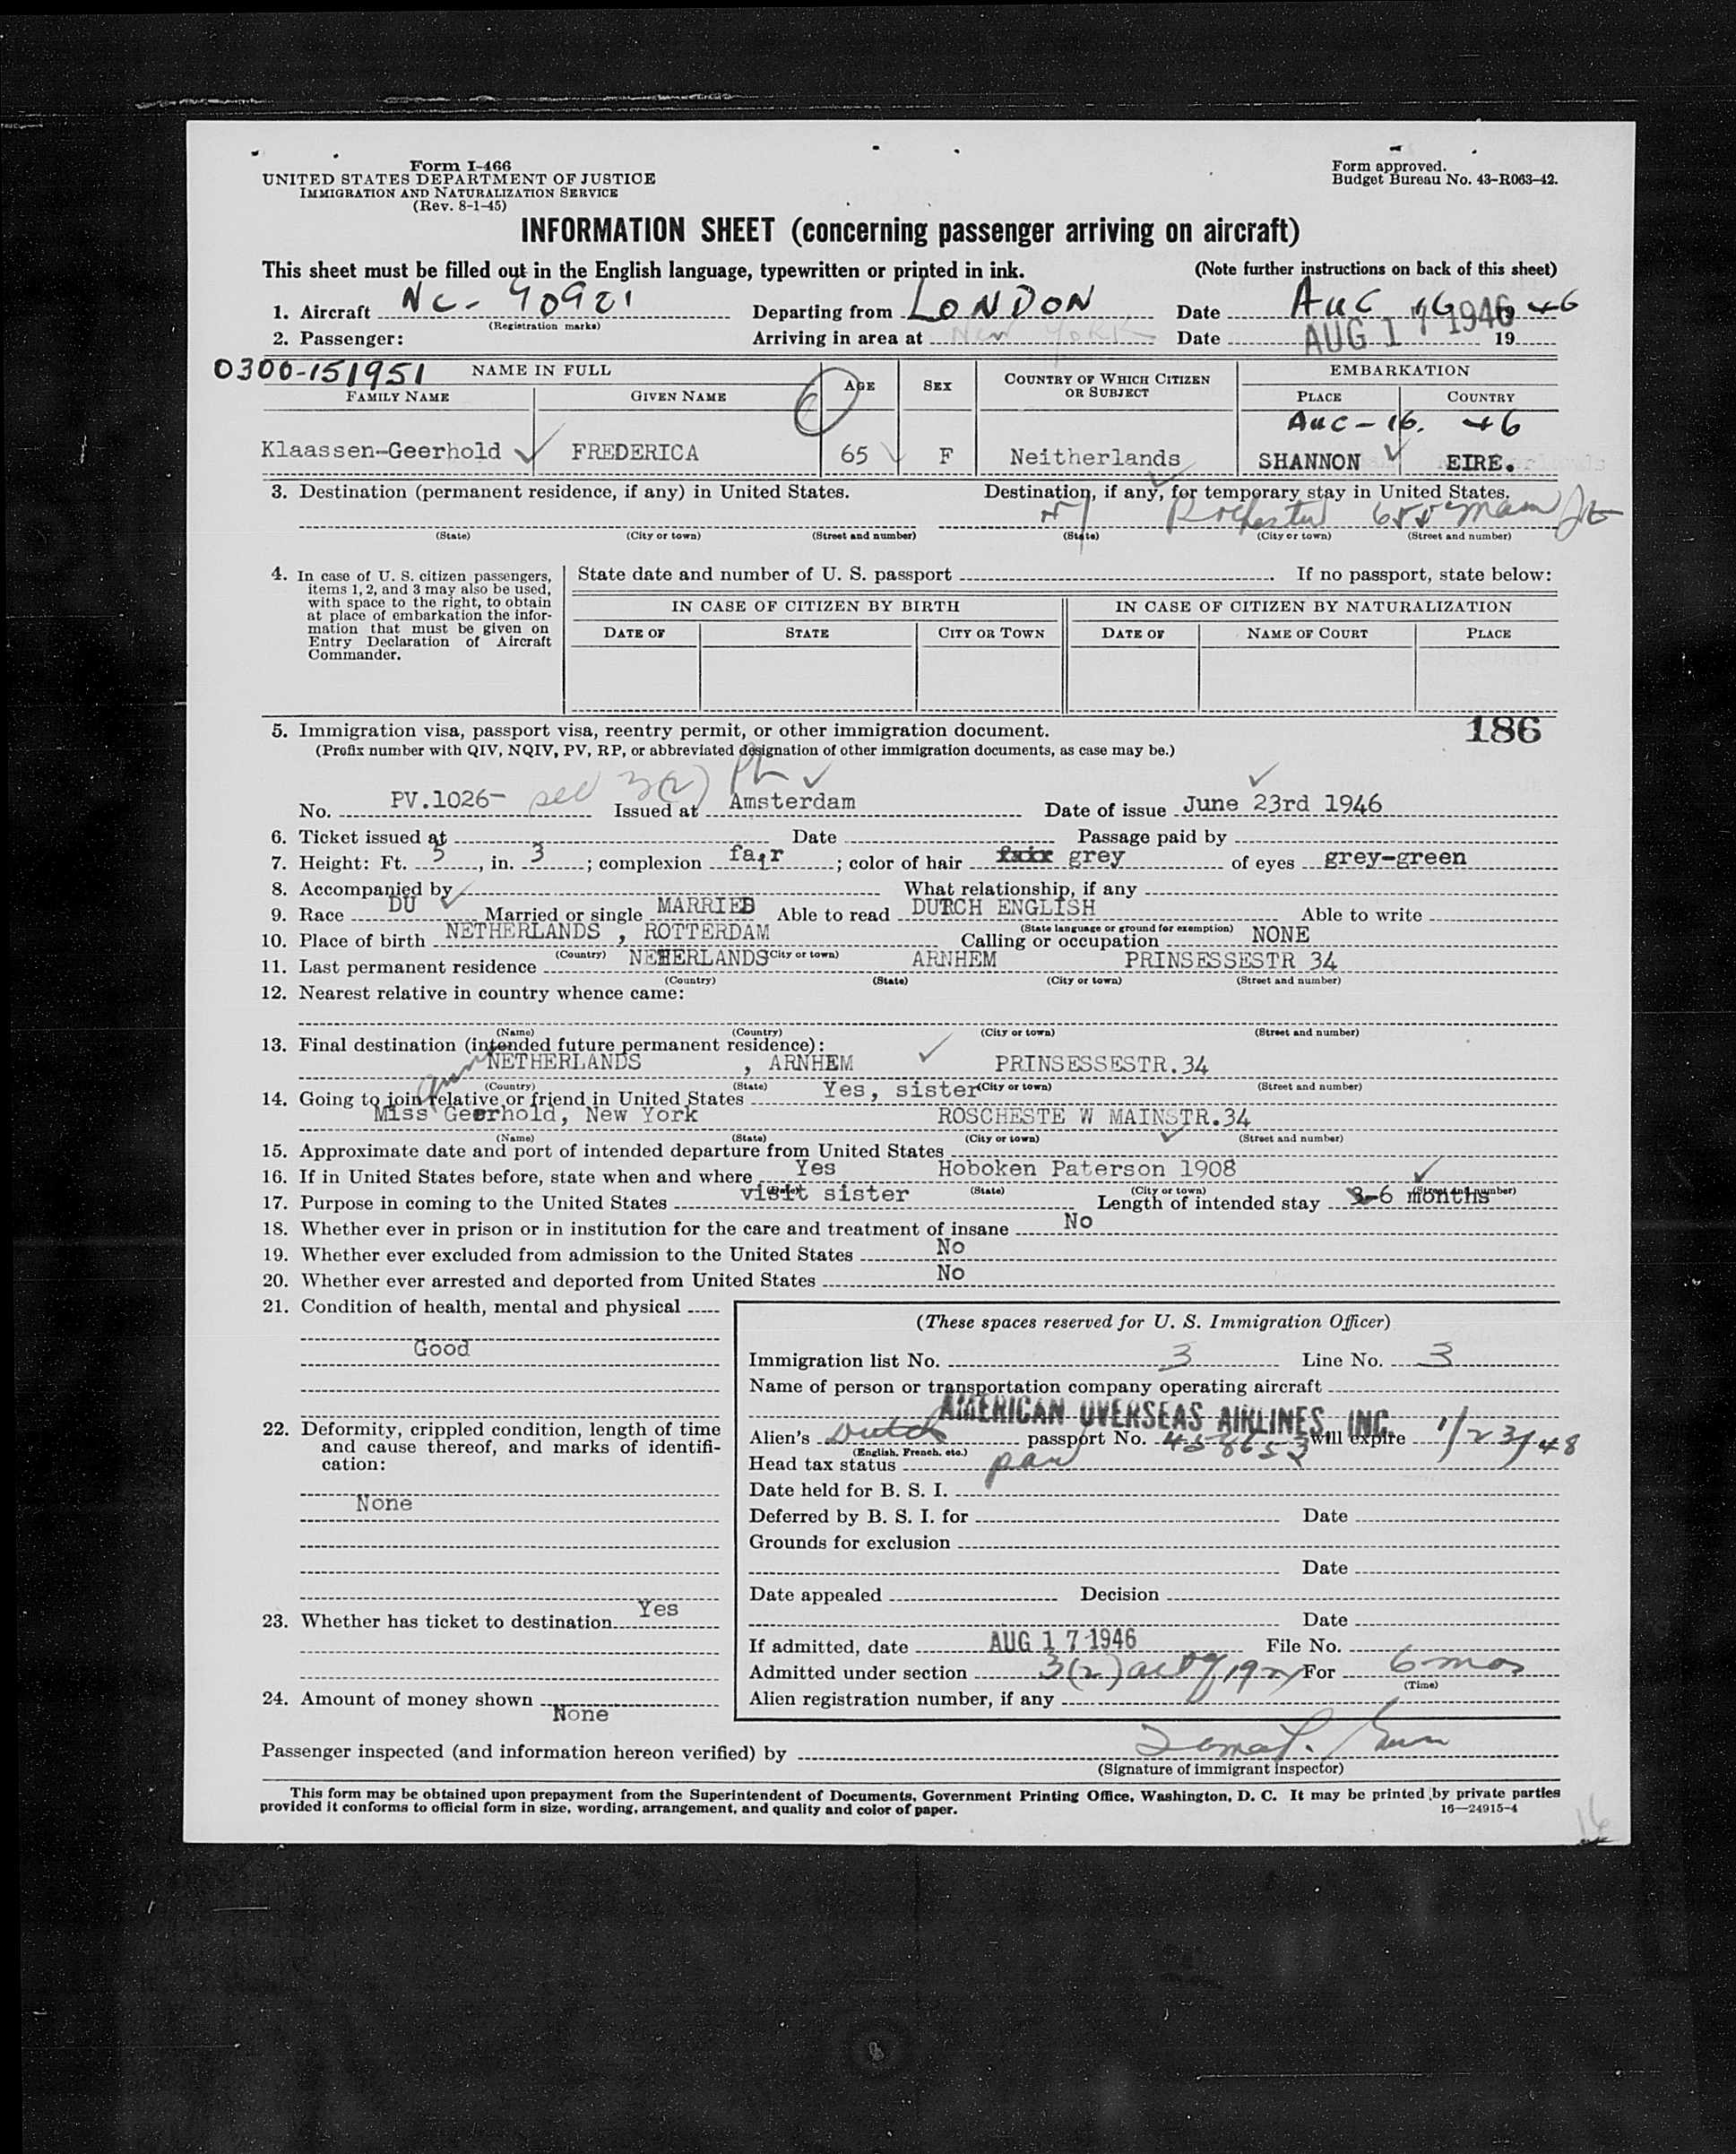 Form I-466
UNITED STATES DEPARTMENT OF JUSTICE
IMMIGRATION AND NATURALIZATION SERVICE
(Rev. 8-1-45)
Form approved.
Budget Bureau No. 43-R063-42.
INFORMATION SHEET (concerning passenger arriving on aircraft)
This sheet must be filled out in the English language, typewritten or printed in ink. (Note further instructions on back of this sheet)
1. Aircraft NC- 90901 Departing from LONDON Date AUG 16 19 46
(Registration marks)
2. Passenger: Arriving in area at NEW YORK Date AUG 17 1946 19
0300-151951 NAME IN FULL AGE SEX COUNTRY OF WHICH CITIZEN OR SUBJECT EMBARKATION
FAMILY NAME GIVEN NAME PLACE COUNTRY
AUG - 16. 46
Klaassen-Geerhold FREDERICA 65 F Neitherlands SHANNON EIRE.
3. Destination (permanent residence, if any) in United States. Destination, if any, for temporary stay in United States.
NY Rochester 655 Main St
(State) (City or town) (Street and number) (State) (City or town) (Street and number)
4. In case of U. S. citizen passengers, items 1, 2, and 3 may also be used, with space to the right, to obtain at place of embarkation the information that must be given on Entry Declaration of Aircraft Commander.
State date and number of U. S. passport . If no passport, state below:
IN CASE OF CITIZEN BY BIRTH IN CASE OF CITIZEN BY NATURALIZATION
DATE OF STATE CITY OR TOWN DATE OF NAME OF COURT PLACE
5. Immigration visa, passport visa, reentry permit, or other immigration document. 186
(Prefix number with QIV, NQIV, PV, RP, or abbreviated designation of other immigration documents, as case may be.)
No. PV.1026- sec 3(2) Issued at Amsterdam Date of issue June 23rd 1946
6. Ticket issued at Date Passage paid by
7. Height: Ft. 5, in. 3; complexion fair; color of hair fair grey of eyes grey-green
8. Accompanied by What relationship, if any
9. Race DU Married or single MARRIED Able to read DUTCH ENGLISH Able to write
(State language or ground for exemption)
10. Place of birth NETHERLANDS , ROTTERDAM Calling or occupation NONE
(Country) (City or town)
11. Last permanent residence NEHERLANDS ARNHEM PRINSESSESTR 34
(Country) (State) (City or town) (Street and number)
12. Nearest relative in country whence came:
(Name) (Country) (City or town) (Street and number)
13. Final destination (intended future permanent residence):
NETHERLANDS , ARNHEM PRINSESSESTR.34
(Country) (State) (City or town) (Street and number)
14. Going to join relative or friend in United States Yes, sister
Miss Geerhold, New York ROSCHESTE W MAINSTR.34
(Name) (State) (City or town) (Street and number)
15. Approximate date and port of intended departure from United States
16. If in United States before, state when and where Yes Hoboken Paterson 1908
(Date) (State) (City or town) (Street and number)
17. Purpose in coming to the United States visit sister Length of intended stay 3-6 months
18. Whether ever in prison or in institution for the care and treatment of insane No
19. Whether ever excluded from admission to the United States No
20. Whether ever arrested and deported from United States No
21. Condition of health, mental and physical
Good
22. Deformity, crippled condition, length of time and cause thereof, and marks of identification:
None
23. Whether has ticket to destination Yes
24. Amount of money shown None
(These spaces reserved for U. S. Immigration Officer)
Immigration list No. 3 Line No. 3
Name of person or transportation company operating aircraft
AMERICAN OVERSEAS AIRLINES, INC.
Alien's Dutch passport No. 458653 will expire 1/23/48
(English, French, etc.)
Head tax status
Date held for B. S. I.
Deferred by B. S. I. for Date
Grounds for exclusion
Date
Date appealed Decision
Date
If admitted, date AUG 17 1946 File No.
Admitted under section 3(2) act of 1924 For 6 mos
(Time)
Alien registration number, if any
Passenger inspected (and information hereon verified) by
(Signature of immigrant inspector)
This form may be obtained upon prepayment from the Superintendent of Documents, Government Printing Office, Washington, D. C. It may be printed by private parties
provided it conforms to official form in size, wording, arrangement, and quality and color of paper. 16—24915-4
16